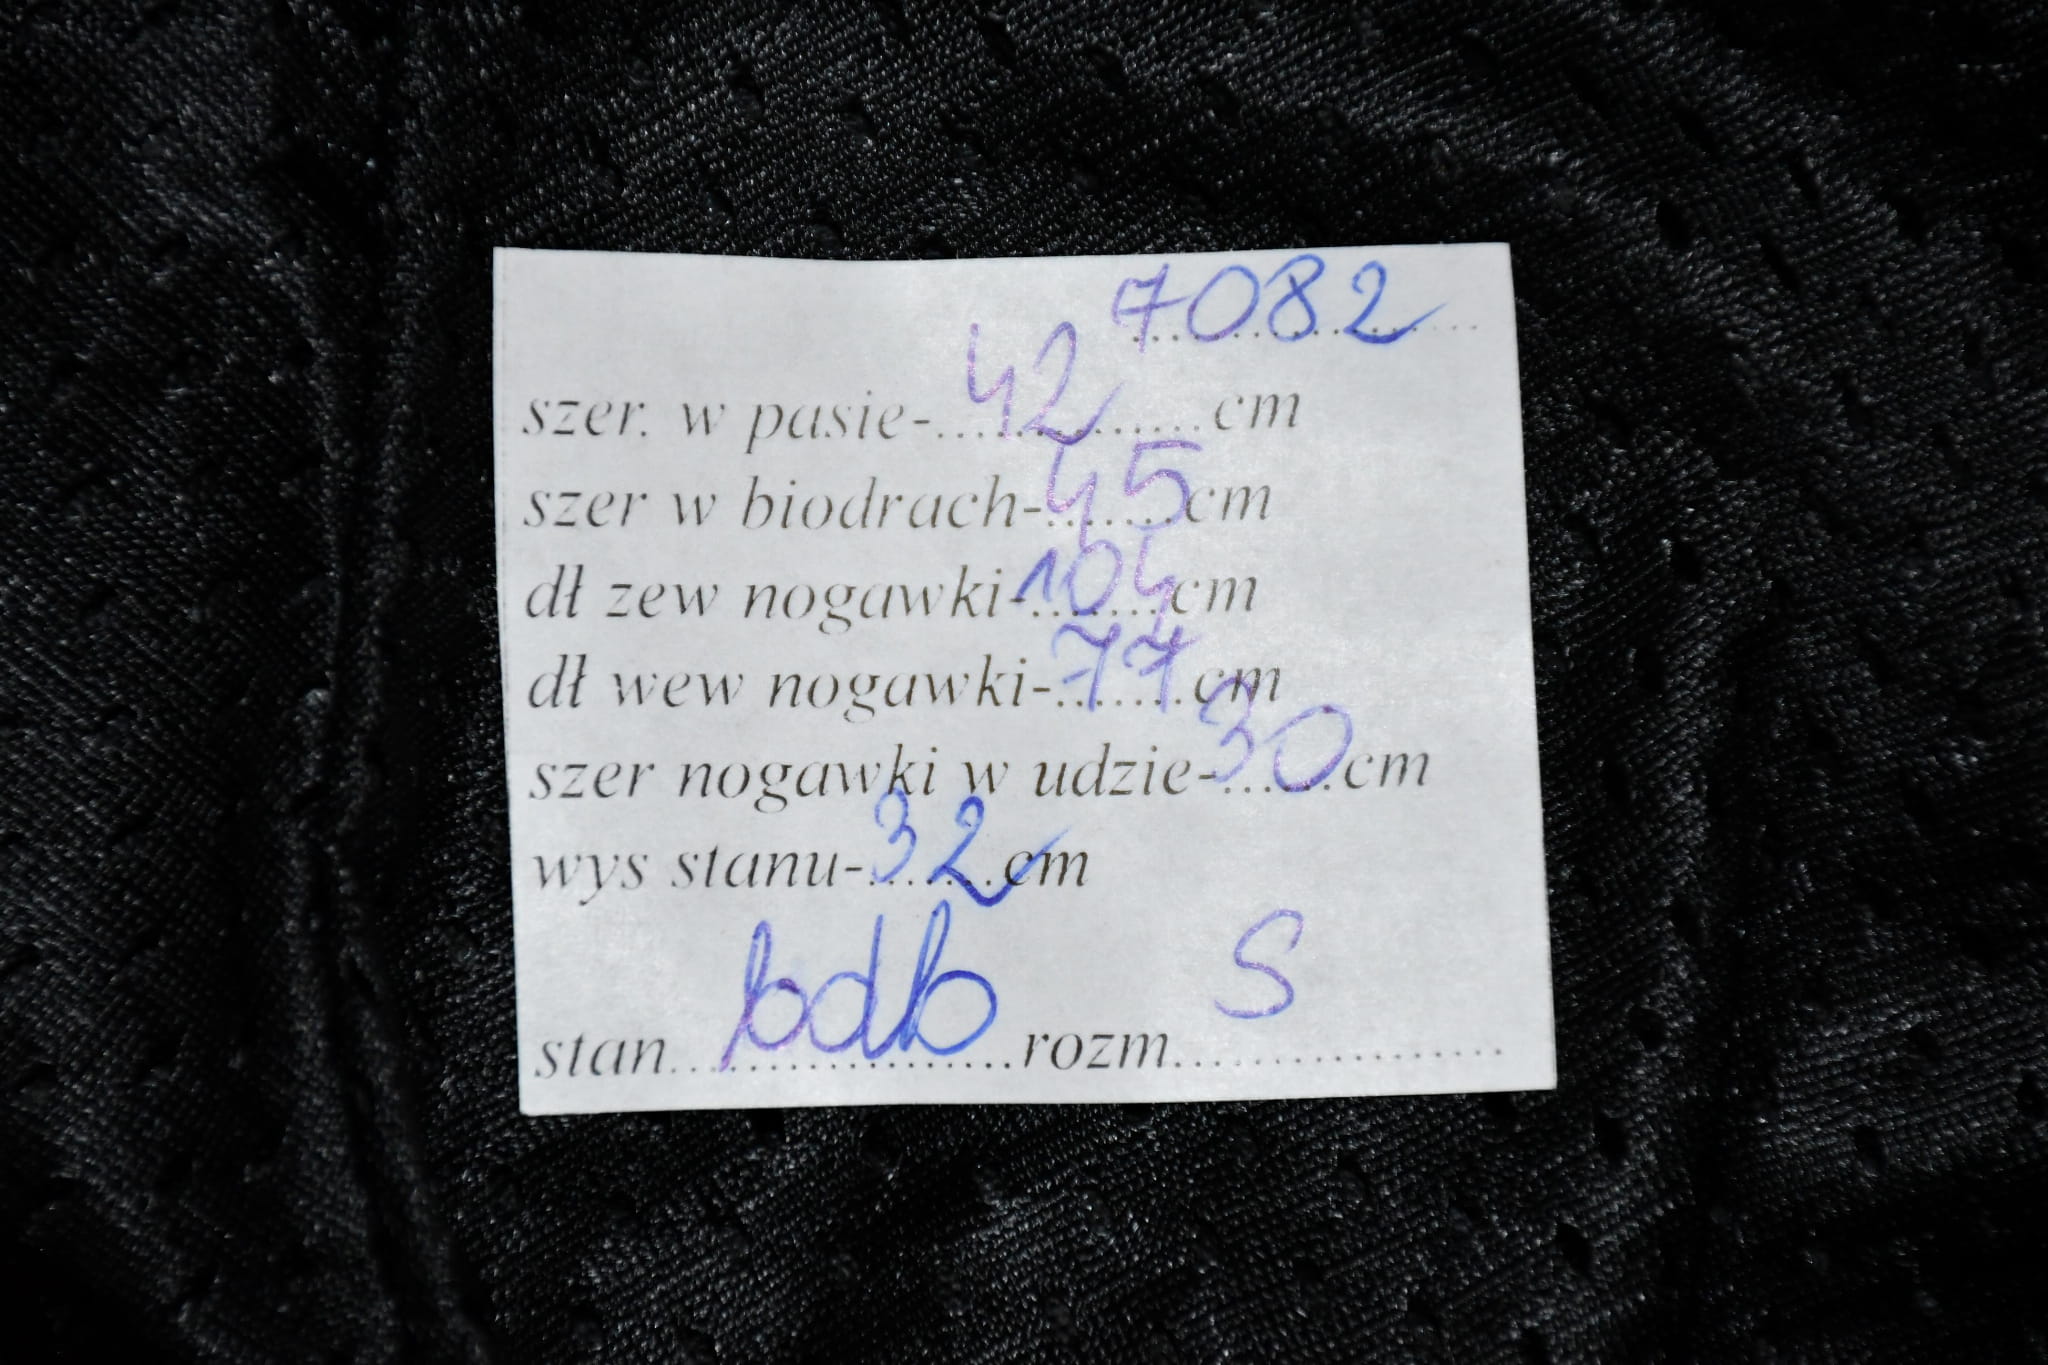 7082
szer. w pasie-42cm
szer w biodrach-45cm
dł zew nogawki-104cm
dł wew nogawki-77cm
szer nogawki w udzie-30cm
wys stanu-32cm
stan bdb rozm S